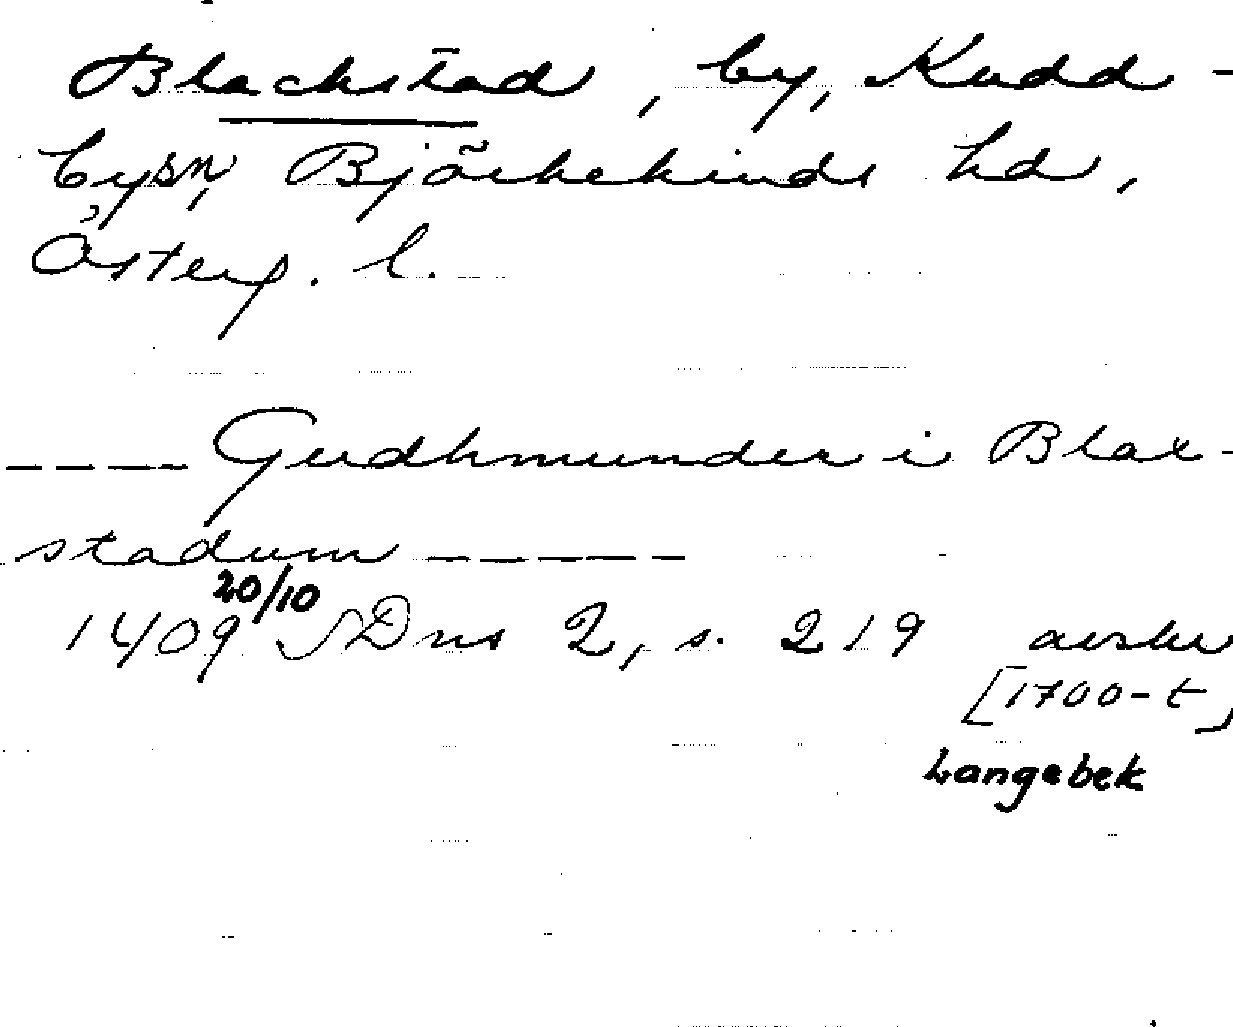 Blackstad, by, Kudd-
bysn, Björkekinds hd,
Österg. l.
---- Gudhmunder i Blax-
stadum -----
20/10
1409 SDns 2, s. 219 avskr
[1700-t]
Langebek